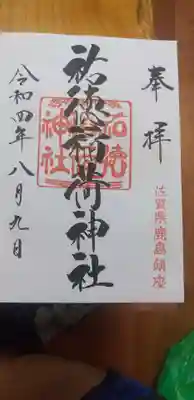 奉拝
佐賀県鹿島鎮座
祐徳稲荷神社
祐徳稲荷神社
令和四年八月九日